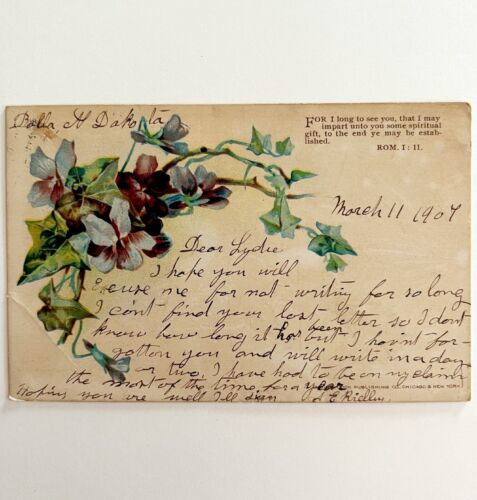 Balla, N Dakota
FOR I long to see you, that I may
impart unto you some spiritual
gift, to the end ye may be estab-
lished.
ROM. I : 11.
March 11 1907
Dear Lydie
I hope you will
Excuse me for not writing for so long
I can't find your last letter so I dont
know how long it has been but I haint for-
gotton you and will write in a day
or two, I have had to be on my claim
the most of the time, for a year
PUBLISHING CO., CHICAGO & NEW YORK
Hoping you are well I'll
S E Ridley